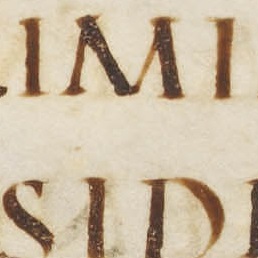 IMI
SID